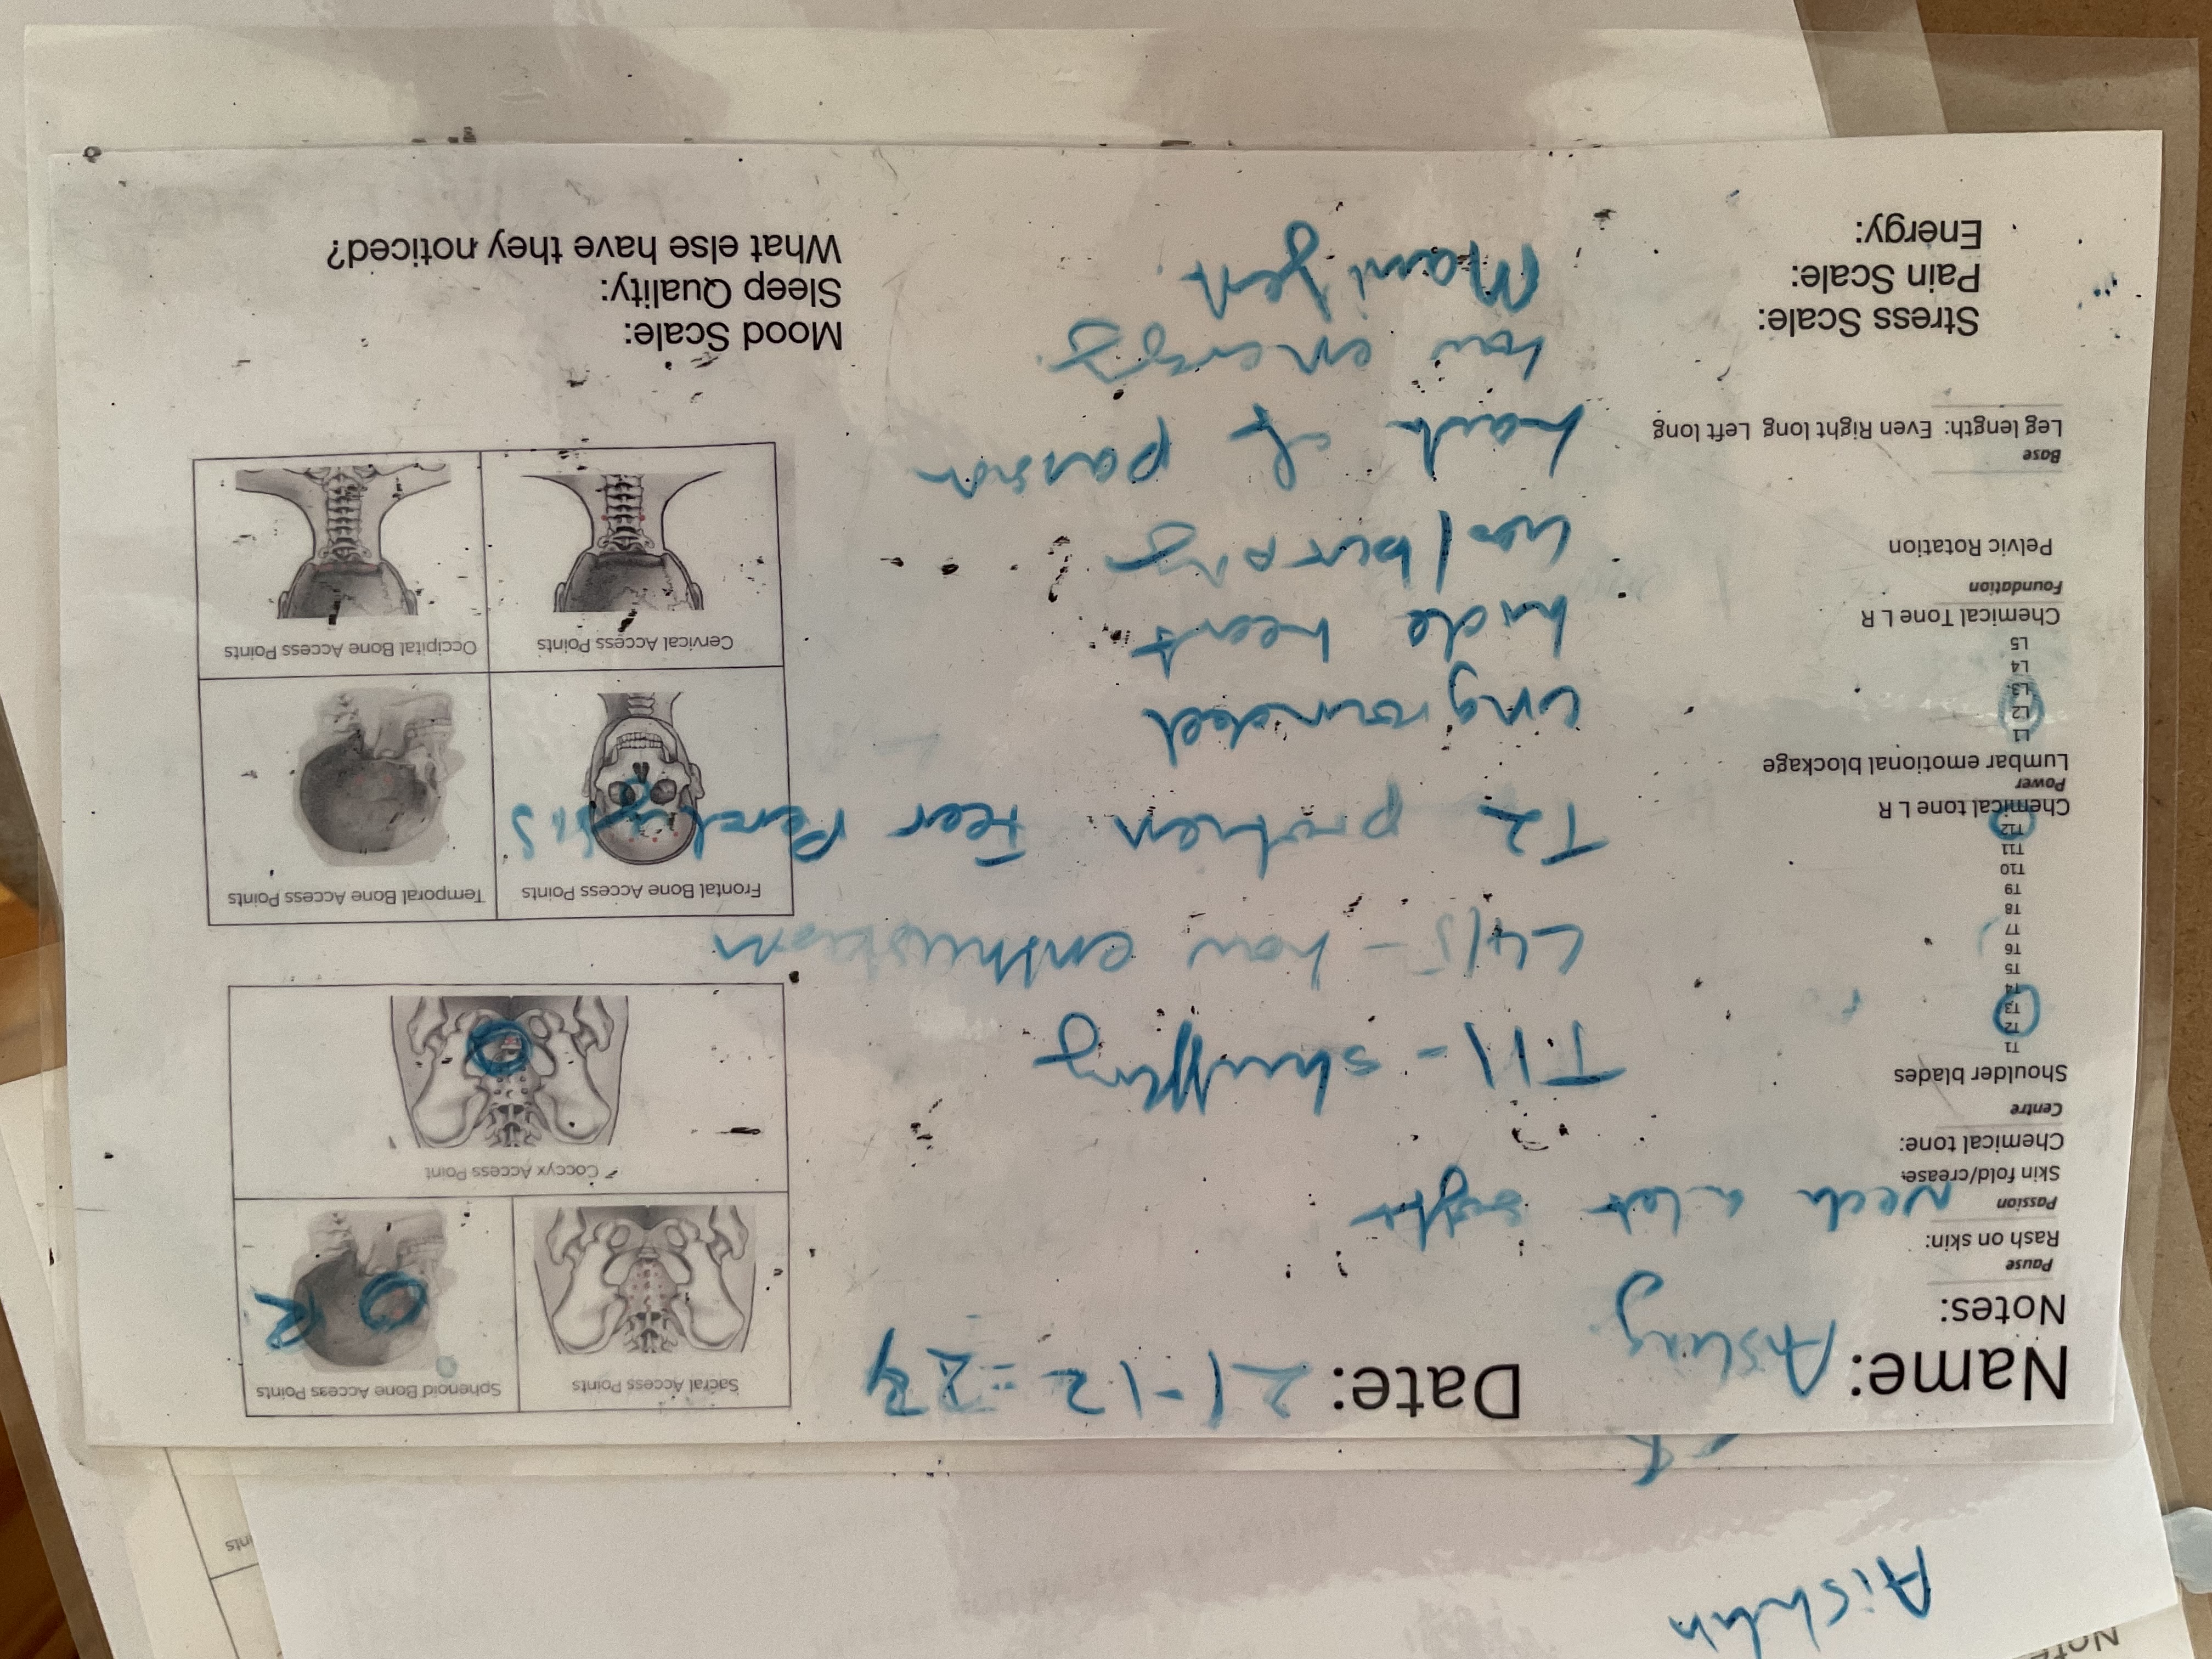 Name: Aisling Date: 21-12-23
Notes:
Pause
Rash on skin:
Passion
Skin fold/crease:
Neck a lot
Chemical tone:
Centre
Shoulder blades
T1
T2
T3
T4
T5
T6
T7
T8
T9
T10
T11
T12
Chemical tone L R
Power
Lumbar emotional blockage
L1
L2
L3
L4
L5
Chemical Tone L R
Foundation
Pelvic Rotation
Base
Leg length: Even Right long Left long
Stress Scale:
Pain Scale:
Energy:
T11 - shuffling
L4/5 - low enthusiasm
T2 protien Feer Paralysis
ungrounded
hide heart
lack of passion
low energy
Manifest
Sacral Access Points
Sphenoid Bone Access Points
R
Coccyx Access Point
Frontal Bone Access Points
Temporal Bone Access Points
Cervical Access Points
Occipital Bone Access Points
Mood Scale:
Sleep Quality:
What else have they noticed?